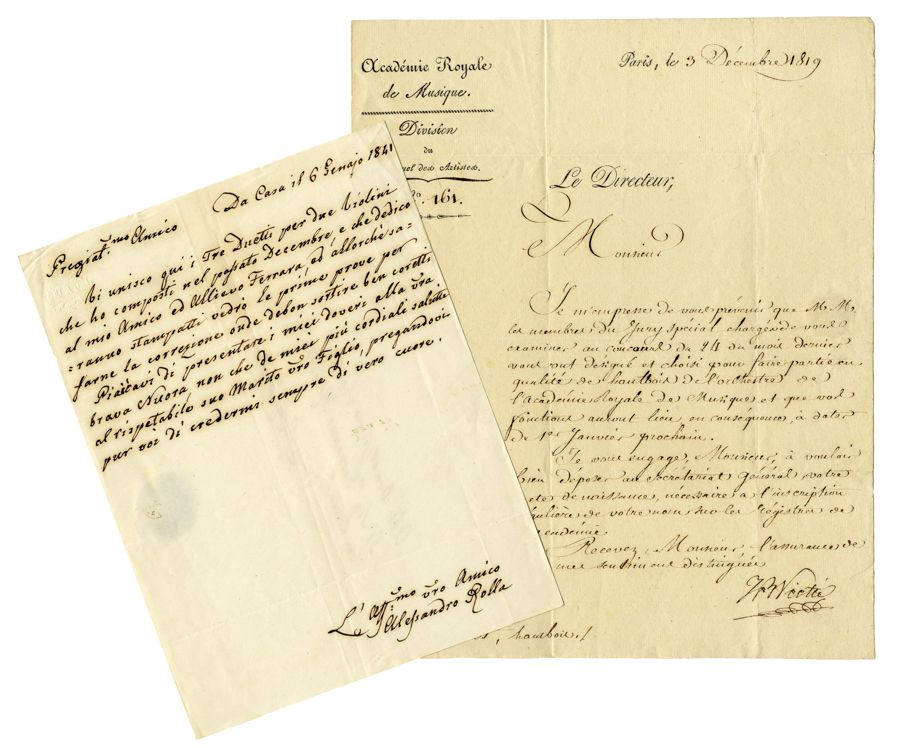 Académie Royale
de Musique.
Division
du
nel des Artistes.
o. 161.
Paris, le 3 Décembre 1819
Le Directeur,
Monsieur
Je m'empresse de vous prévenir que M.M.
les membres du Jury spécial chargés de vous
examiner au concours du 24 du mois dernier
vous ont désigné et choisi pour faire partie en
qualité de hautbois de l'orchestre de
l'Académie Royale de Musique et que vos
fonctions auront lieu en conséquence, à dater
du 1er Janvier prochain.
Je vous engage, Monsieur, à vouloir
bien déposer au Secrétariat Général votre
acte de naissance, nécessaire à l'inscription
gulière de votre nom sur les Régistres de
cadémie.
Recevez, Monsieur, l'assurance de
mes sentimens distingués
JB Viotti
hautbois./
Da Casa il 6 Genajo 1841
Pregiat.mo Amico
Vi unisco qui i Tre Duetti per due Violini
che ho composti nel passato Decembre, e che dedico
al mio Amico ed Allievo Ferrara, ed allorchè sa-
=ranno stampati vedrò le prime prove per
farne la correzione onde debon sortire ben coretti
Piacciavi di presentare i miei doveri alla vra
brava Nuora, non che de miei più cordiali saluti
al rispetabile suo Marito vro Foglio, pregandovi
pur voi di credermi sempre di vero cuore.
L'Aff.mo vro Amico
Alessandro Rolla